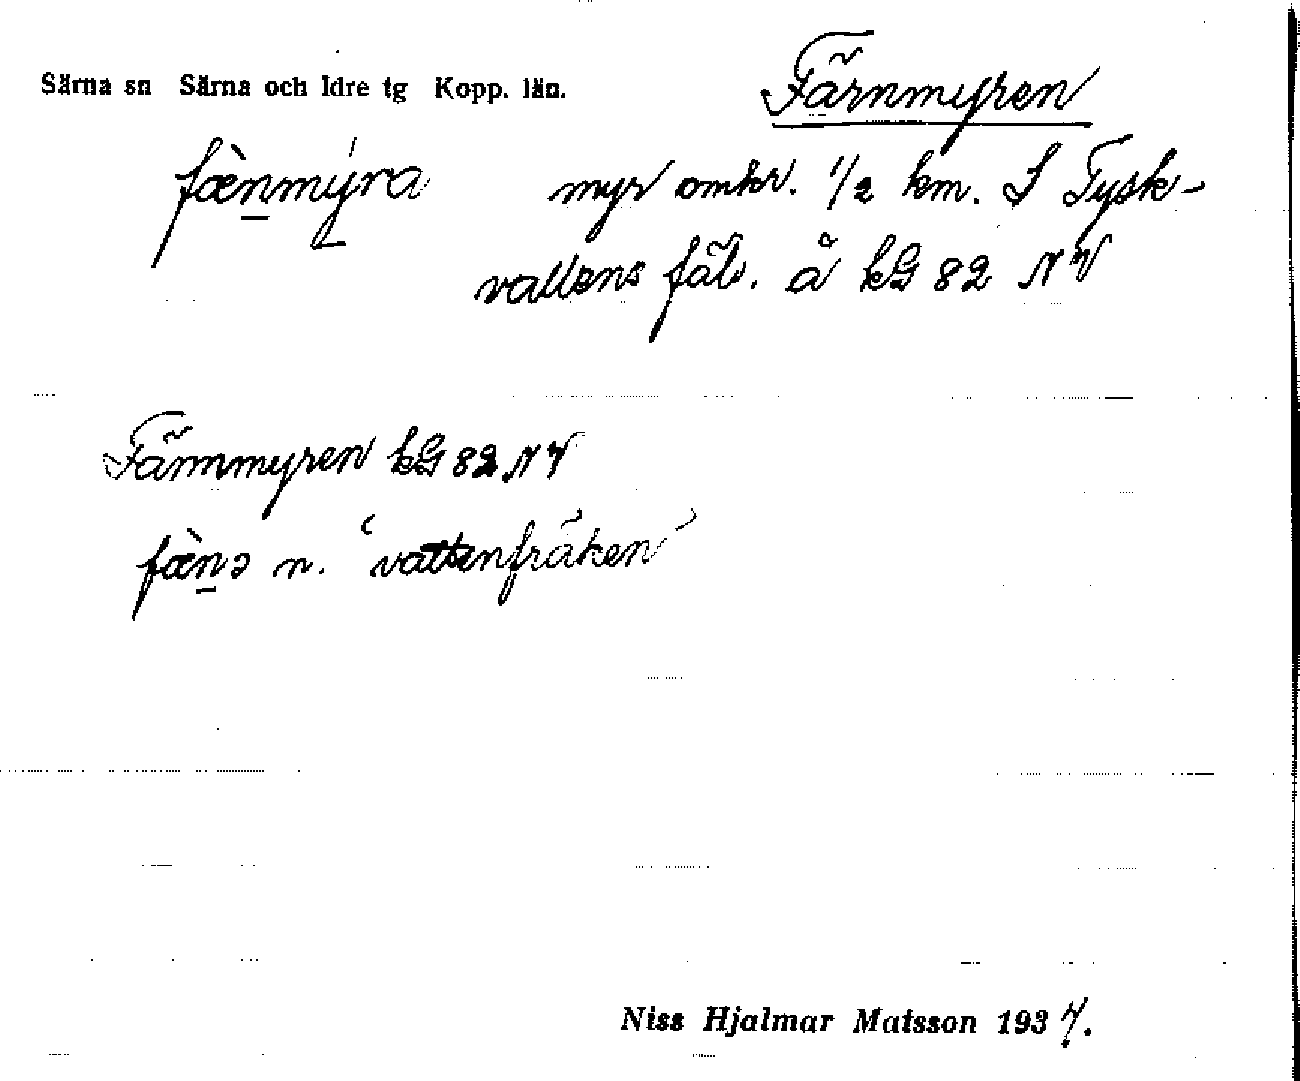 Särna sn Särna och Idre tg Kopp. län.
Färnmyren
fæ̀nmýra myr omkr. 1/2 km. S Tysk-
vallens fäb. å kG 82 NV
Färnmyren kG 82 NV
fæ̀nə n. ‘vattenfräken’
Niss Hjalmar Matsson 1937.